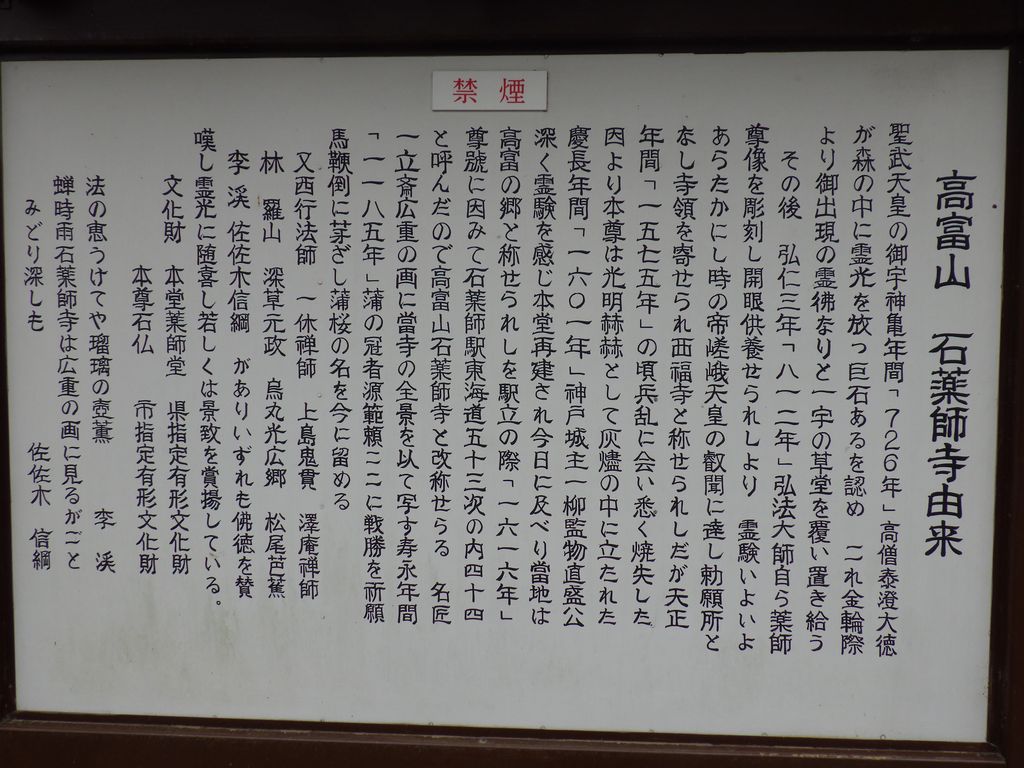 禁煙
高富山 石薬師寺由来
聖武天皇の御宇神亀年間「726年」高僧泰澄大徳
が森の中に霊光を放つ巨石あるを認め これ金輪際
より御出現の霊彿なりと一字の草堂を覆い置き給う
その後 弘仁三年「八一二年」弘法大師自ら薬師
尊像を彫刻し開眼供養せられしより 霊験いよいよ
あらたかにし時の帝嵯峨天皇の叡聞に達し勅願所と
なし寺領を寄せられ西福寺と称せられしだが天正
年間「一五七五年」の頃兵乱に会い悉く焼失した
因より本尊は光明赫赫として灰燼の中に立たれた
慶長年間「一六〇一年」神戸城主一柳監物直盛公
深く霊験を感じ本堂再建され今日に及べり當地は
高富の郷と称せられしを駅立の際「一六一六年」
尊號に因みて石薬師駅東海道五十三次の内四十四
と呼んだので高富山石薬師寺と改称せらる 名匠
一立斎広重の画に當寺の全景を以て写す寿永年間
「一一八五年」蒲の冠者源範頼ここに戦勝を祈願
馬鞭倒に茅ざし蒲桜の名を今に留める
又西行法師 一休禅師 上島鬼貫 澤庵禅師
林 羅山 深草元政 烏丸光広郷 松尾芭蕉
李渓 佐佐木信綱 がありいずれも佛徳を賛
嘆し霊光に随喜し若しくは景致を賞揚している。
文化財 本堂薬師堂 県指定有形文化財
本尊石仏 市指定有形文化財
法の恵うけてや瑠璃の壺菫 李渓
蝉時雨石薬師寺は広重の画に見るがごと
みどり深しも 佐佐木 信綱